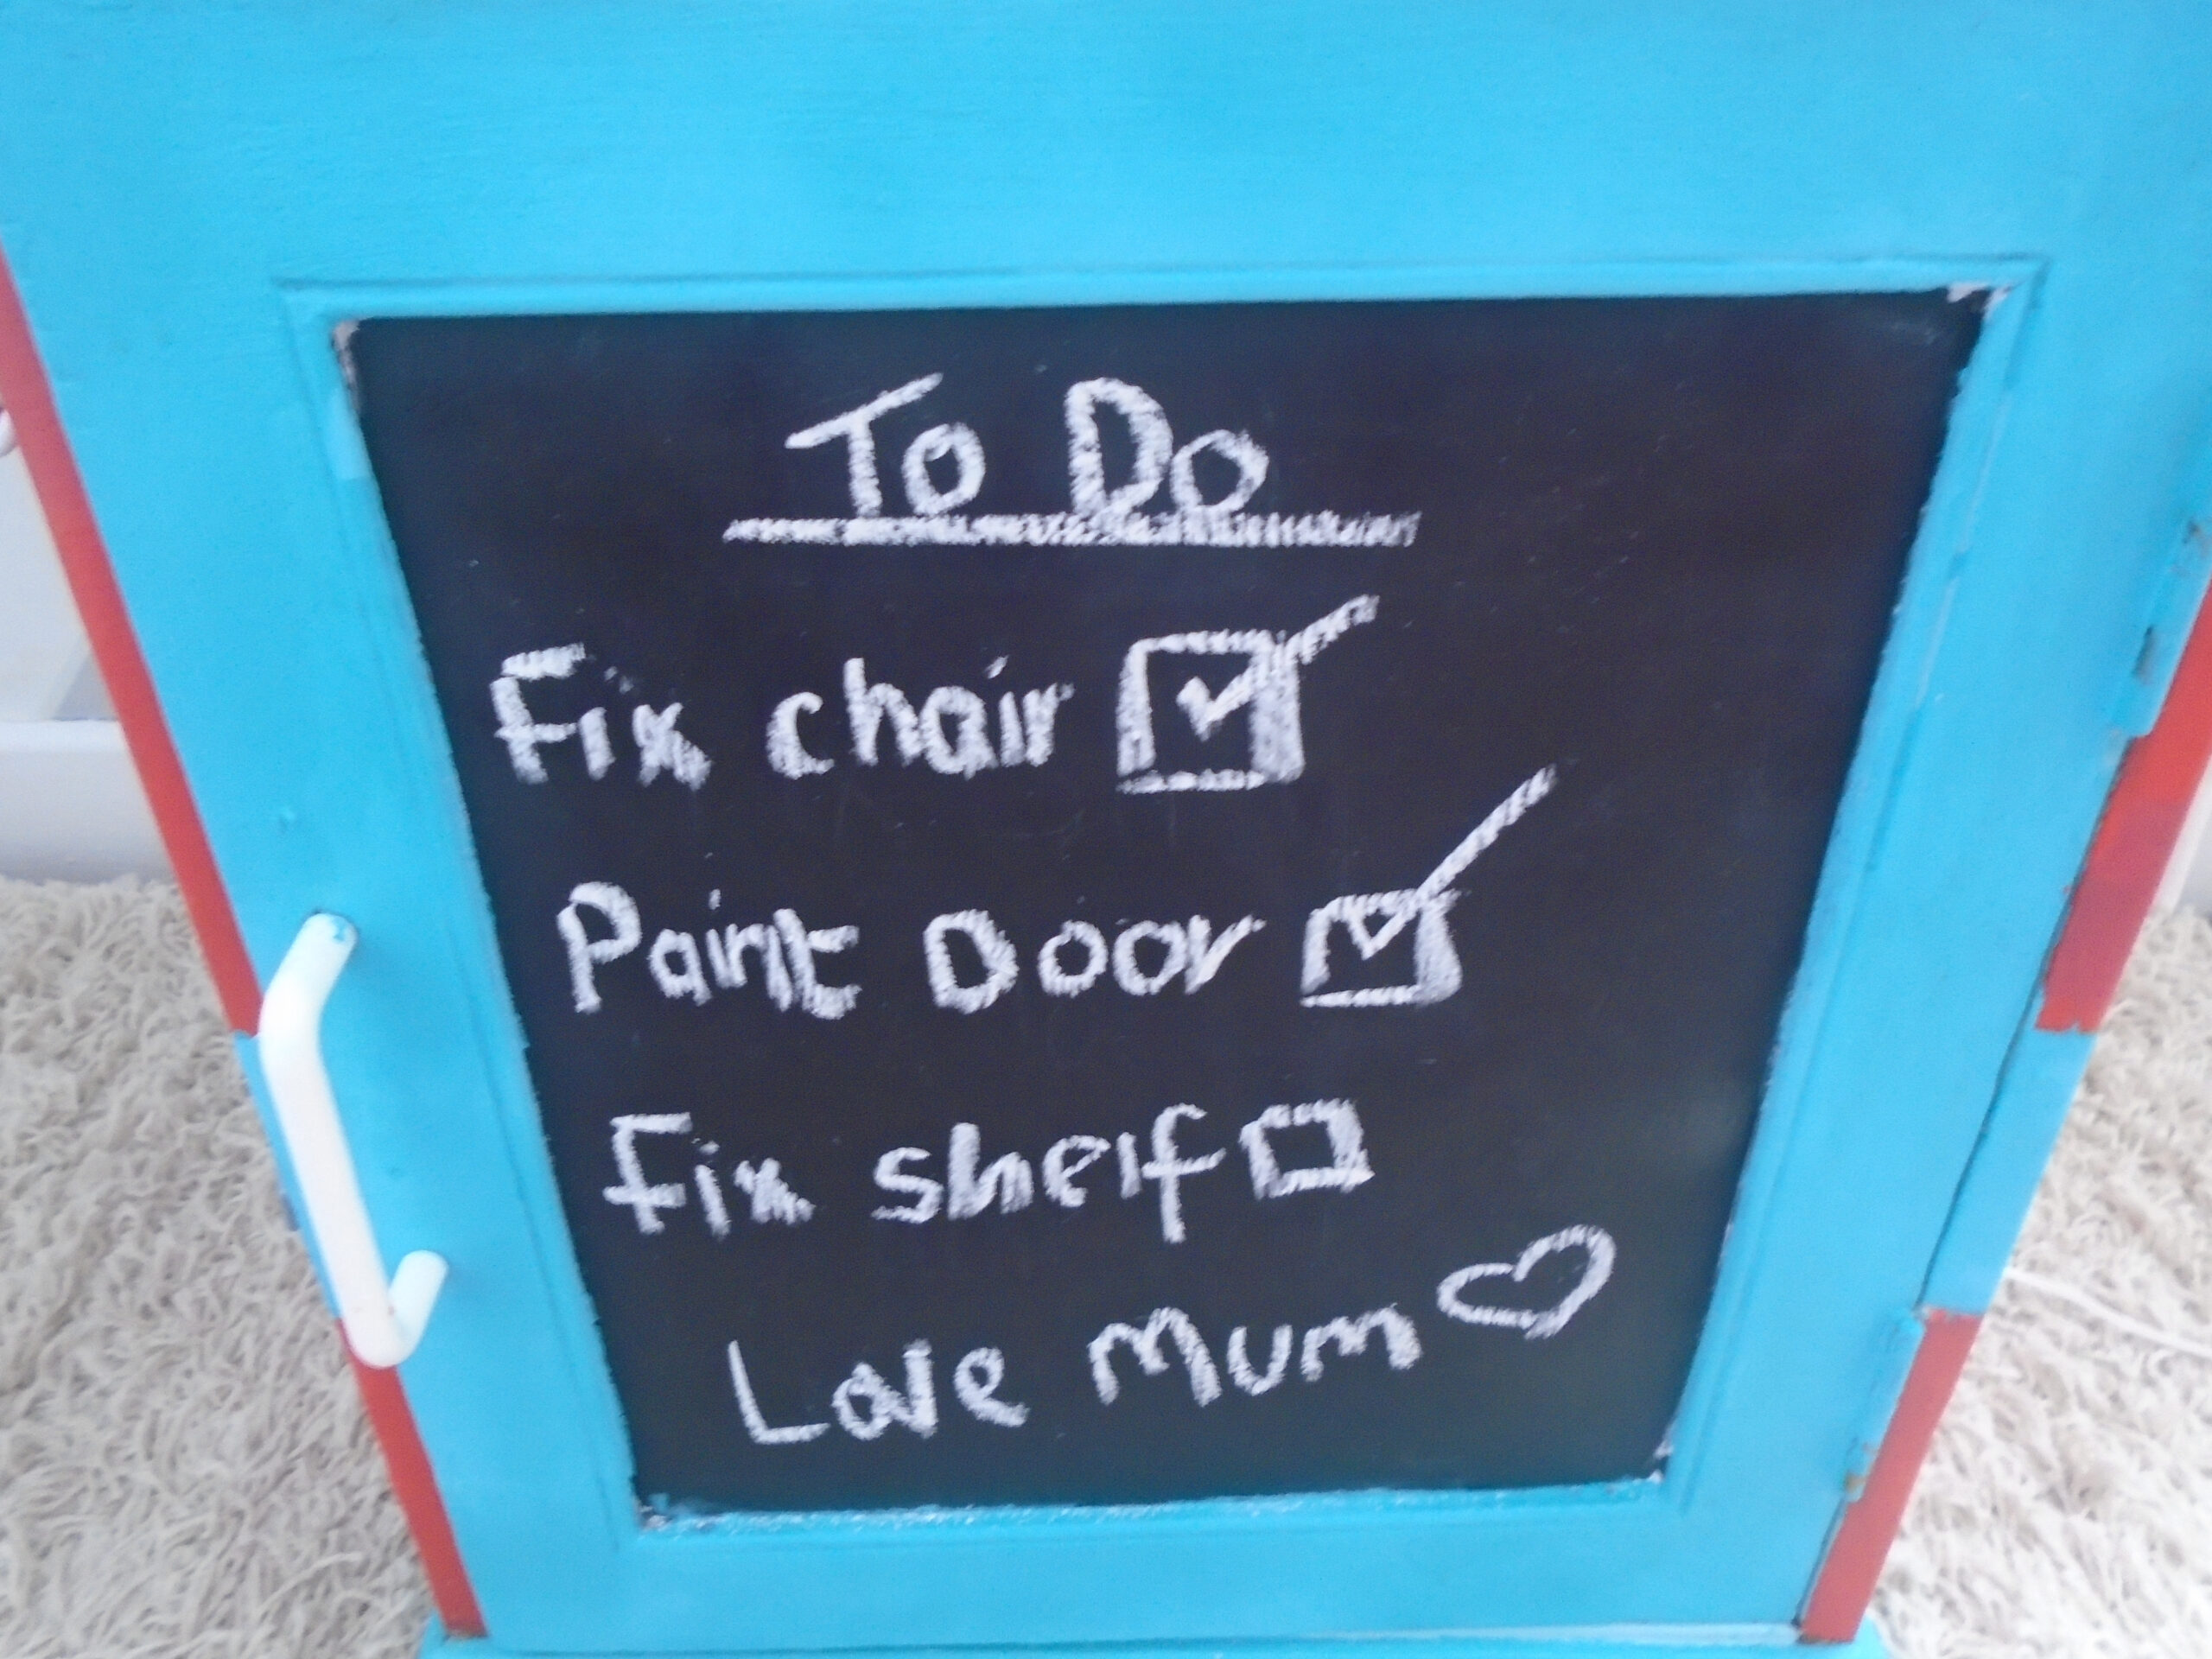 To Do
Fix chair ☑
Paint Door ☑
Fix shelf ☐
Love Mum ♡